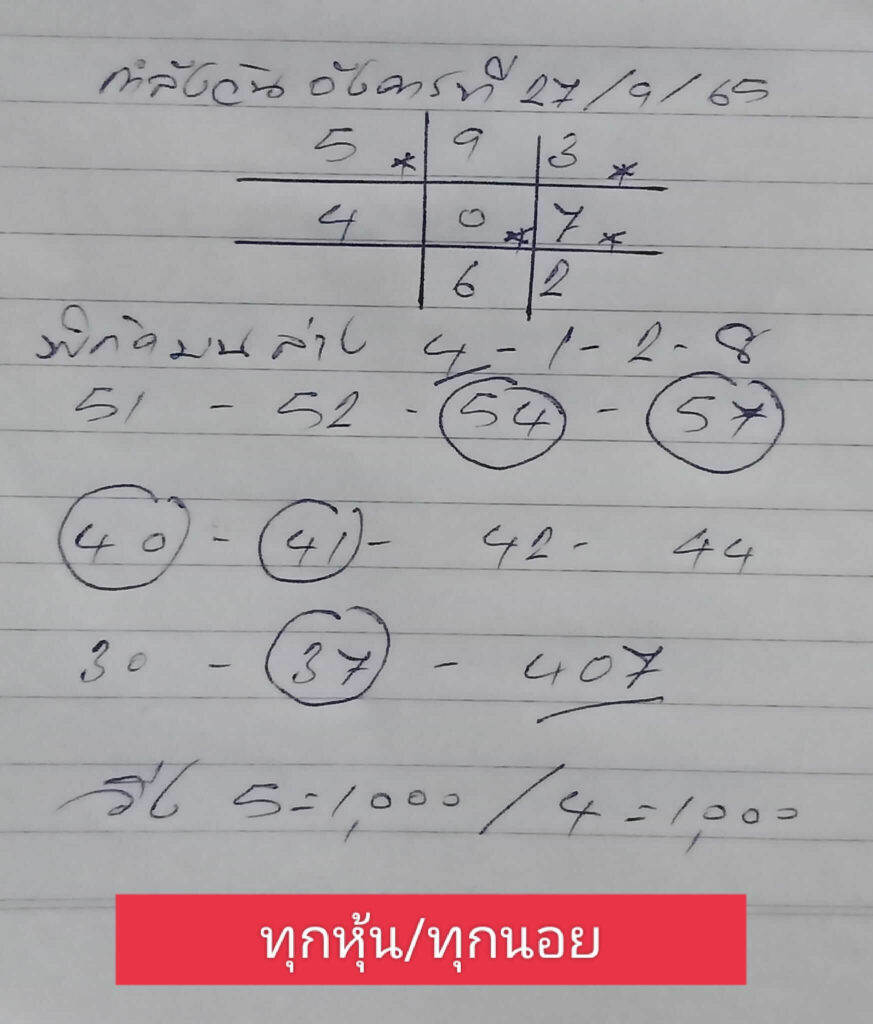 กำลังวัน อังคารที่ 27/9/65
5 * 9 3 *
4 0 * 7 *
6 2
พิกัดบน ล่าง 4 - 1 - 2 - 8
51 - 52 - 54 - 57
40 - 41 - 42 - 44
30 - 37 - 407
วิ่ง 5 = 1,000 / 4 = 1,000
ทุกหุ้น/ทุกนอย